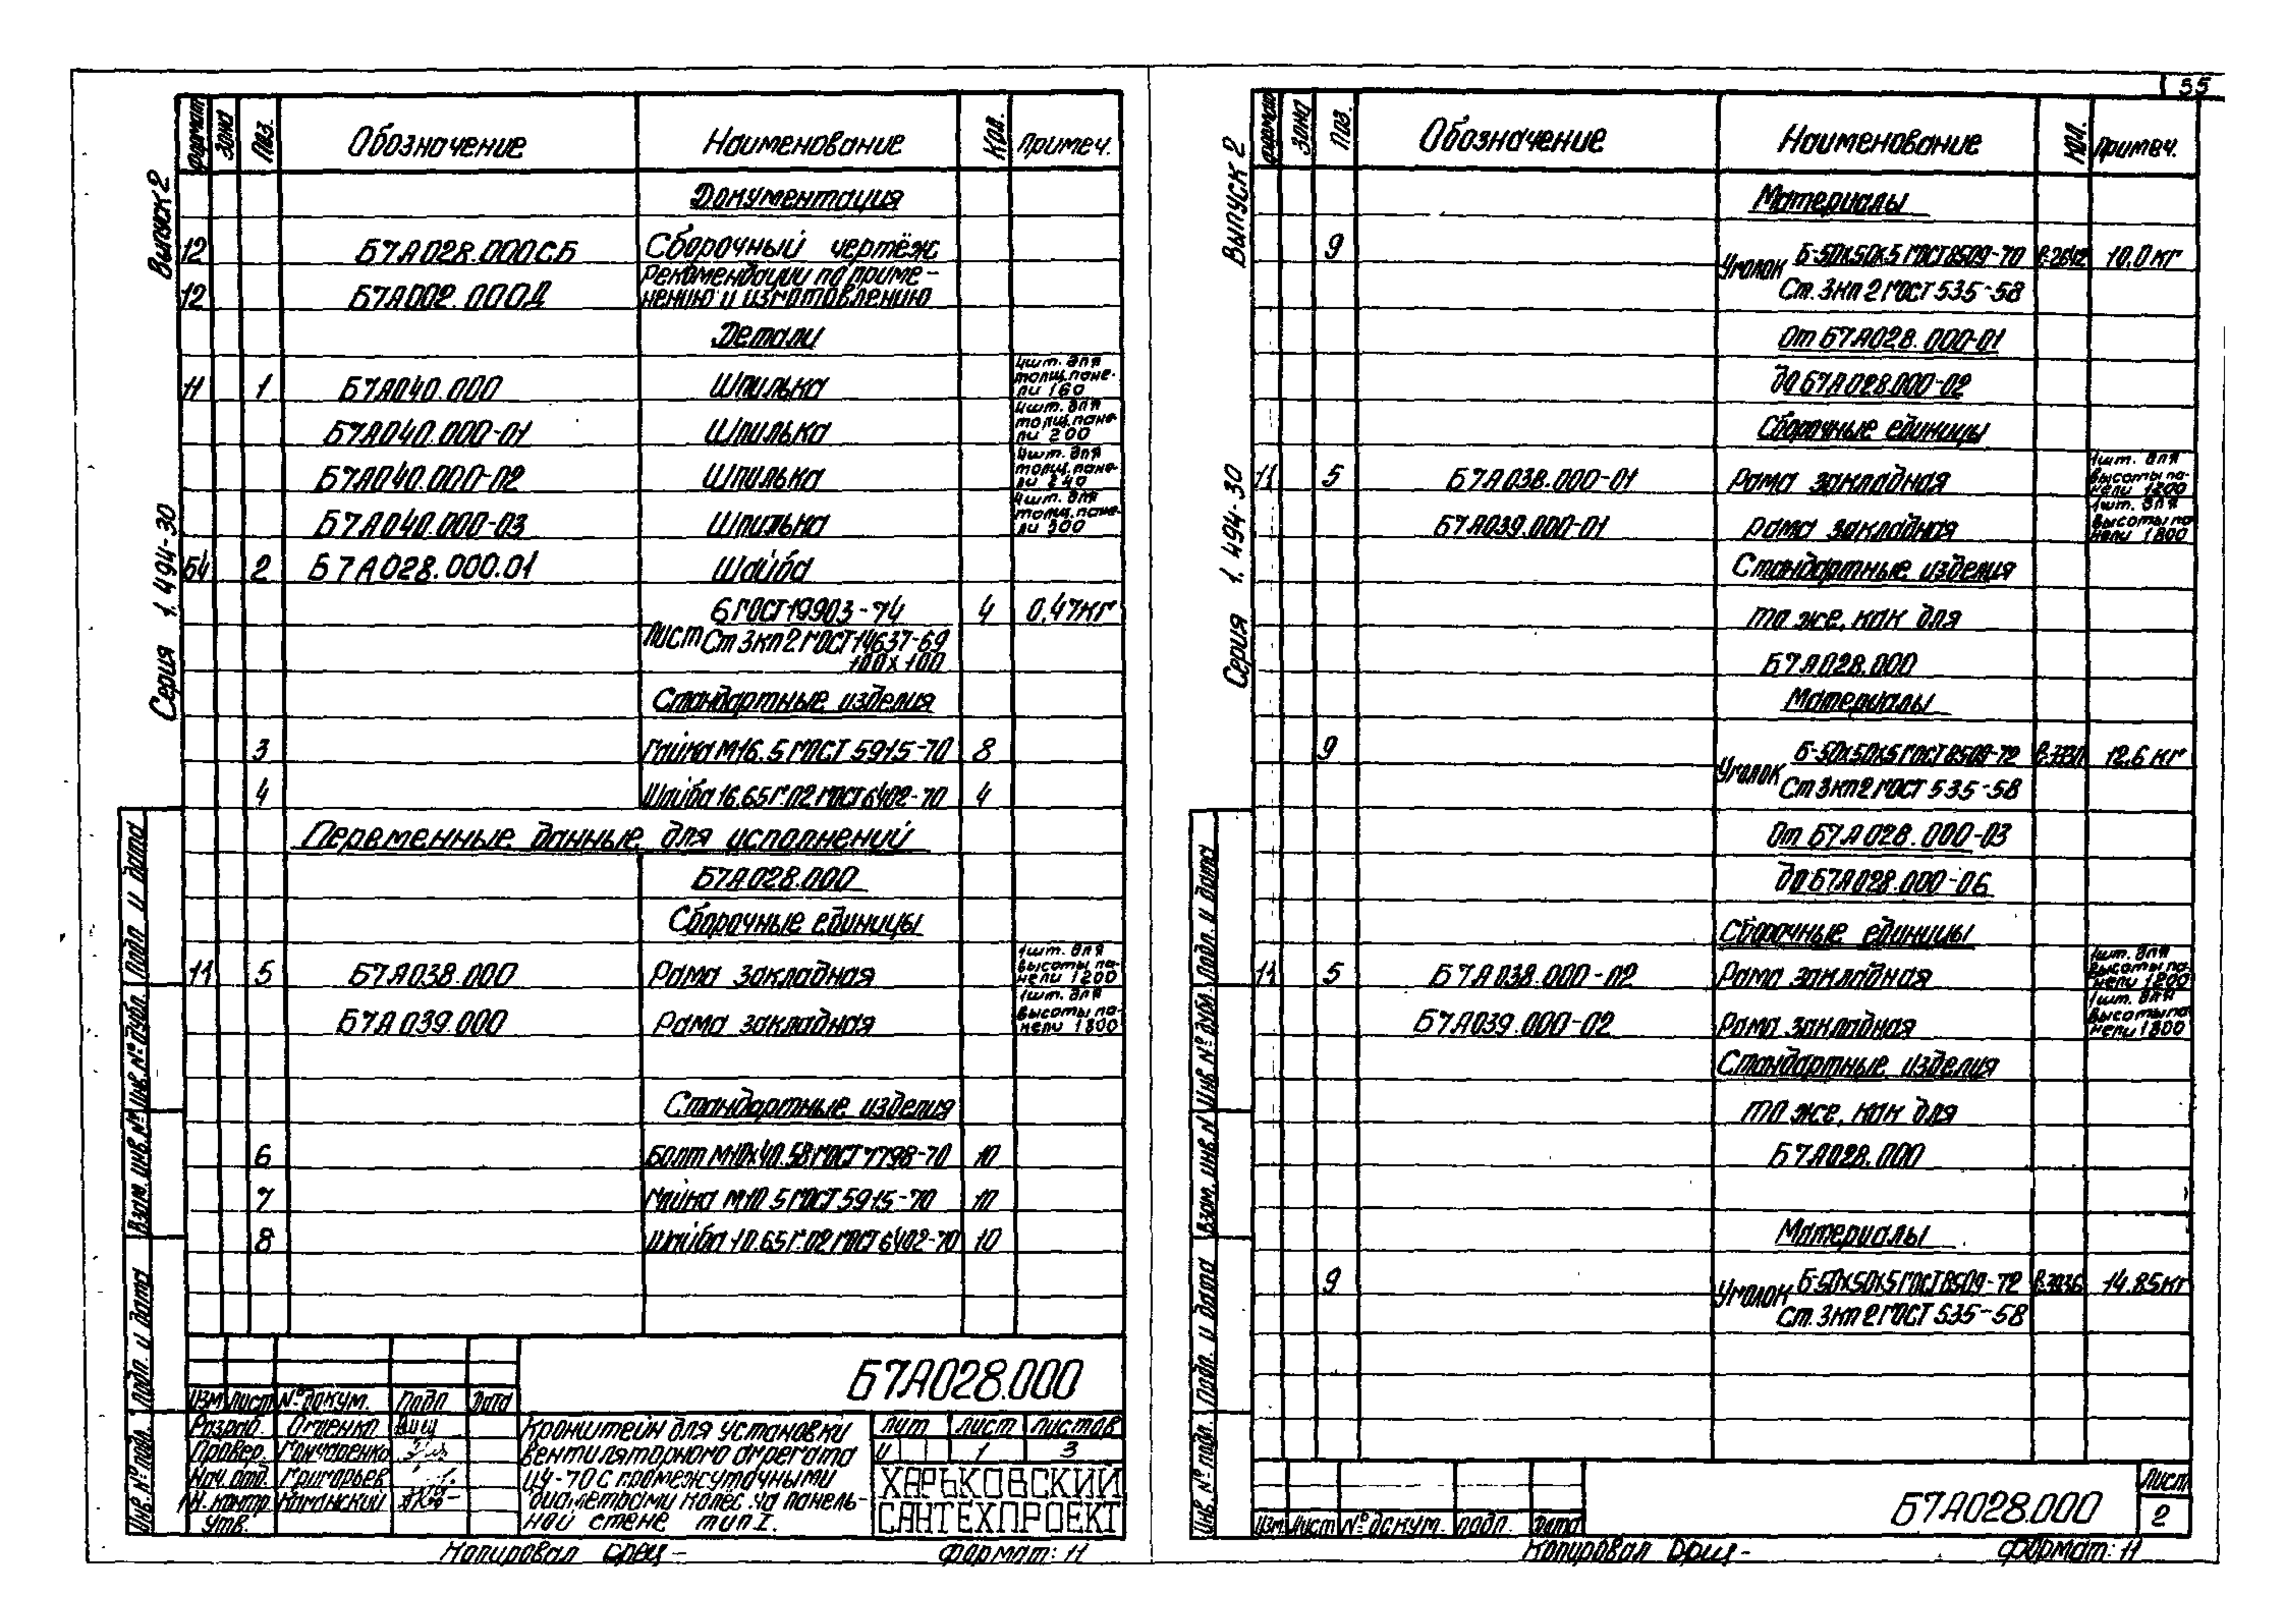 55
Выпуск 2
Серия 1.494-30
Формат Зона Поз. Обозначение Наименование Кол. Примеч.
Документация
12 Б7А028.000СБ Сборочный чертёж
12 Б7А002.000Д Рекомендации по приме-
нению и изготовлению
Детали
11 1 Б7А040.000 Шпилька 4шт. для толщ. пане-ли 160
Б7А040.000-01 Шпилька 4шт. для толщ. пане-ли 200
Б7А040.000-02 Шпилька 4шт. для толщ. пане-ли 240
Б7А040.000-03 Шпилька 4шт. для толщ. пане-ли 300
Б4 2 Б7А028.000.01 Шайба
6 ГОСТ 19903-74 4 0,47кг
Лист Ст 3кп2 ГОСТ 14637-69
100х100
Стандартные изделия
3 Гайка М16.5 ГОСТ 5915-70 8
4 Шайба 16.65Г.02 ГОСТ 6402-70 4
Переменные данные для исполнений
Б7А028.000
Сборочные единицы
11 5 Б7А038.000 Рама закладная 1шт. для высоты па-нели 1200
Б7А039.000 Рама закладная 1шт. для высоты па-нели 1800
Стандартные изделия
6 Болт М10х40.58 ГОСТ 7798-70 10
7 Гайка М10.5 ГОСТ 5915-70 10
8 Шайба 10.65Г.02 ГОСТ 6402-70 10
Подп. и дата
Инв. № дубл.
Взам. инв. №
Подп. и дата
Инв. № подл.
Б7А028.000
Изм Лист № докум. Подп Дата
Разраб.
Провер. Гончаренко
Нач. отд. Григорьев
Н. контр. Каганский
Утв.
Кронштейн для установки
вентиляторного агрегата
Ц4-70 с промежуточными
диаметрами колёс на панель-
ной стене тип I.
Лит Лист Листов
И 1 3
ХАРЬКОВСКИЙ
САНТЕХПРОЕКТ
Копировал Формат: 11
Выпуск 2
Серия 1.494-30
Формат Зона Поз. Обозначение Наименование Кол. Примеч.
Материалы
9 Уголок Б-50х50х5 ГОСТ 8509-70 10,0 кг
Ст. 3кп2 ГОСТ 535-58
От Б7А028.000-01
до Б7А028.000-02
Сборочные единицы
11 5 Б7А038.000-01 Рама закладная 1шт. для высоты па-нели 1200
Б7А039.000-01 Рама закладная 1шт. для высоты па-нели 1800
Стандартные изделия
то же, как для
Б7А028.000
Материалы
9 Уголок Б-50х50х5 ГОСТ 8509-72 12,6 кг
Ст 3кп2 ГОСТ 535-58
От Б7А028.000-03
до Б7А028.000-06
Сборочные единицы
11 5 Б7А038.000-02 Рама закладная 1шт. для высоты па-нели 1200
Б7А039.000-02 Рама закладная 1шт. для высоты па-нели 1800
Стандартные изделия
то же, как для
Б7А028.000
Материалы
9 Уголок Б-50х50х5 ГОСТ 8509-72 14,85кг
Ст. 3кп2 ГОСТ 535-58
Подп. и дата
Инв. № дубл.
Взам. инв. №
Подп. и дата
Инв. № подл.
Изм Лист № докум. Подп. Дата
Б7А028.000
Лист
2
Копировал Формат: 11